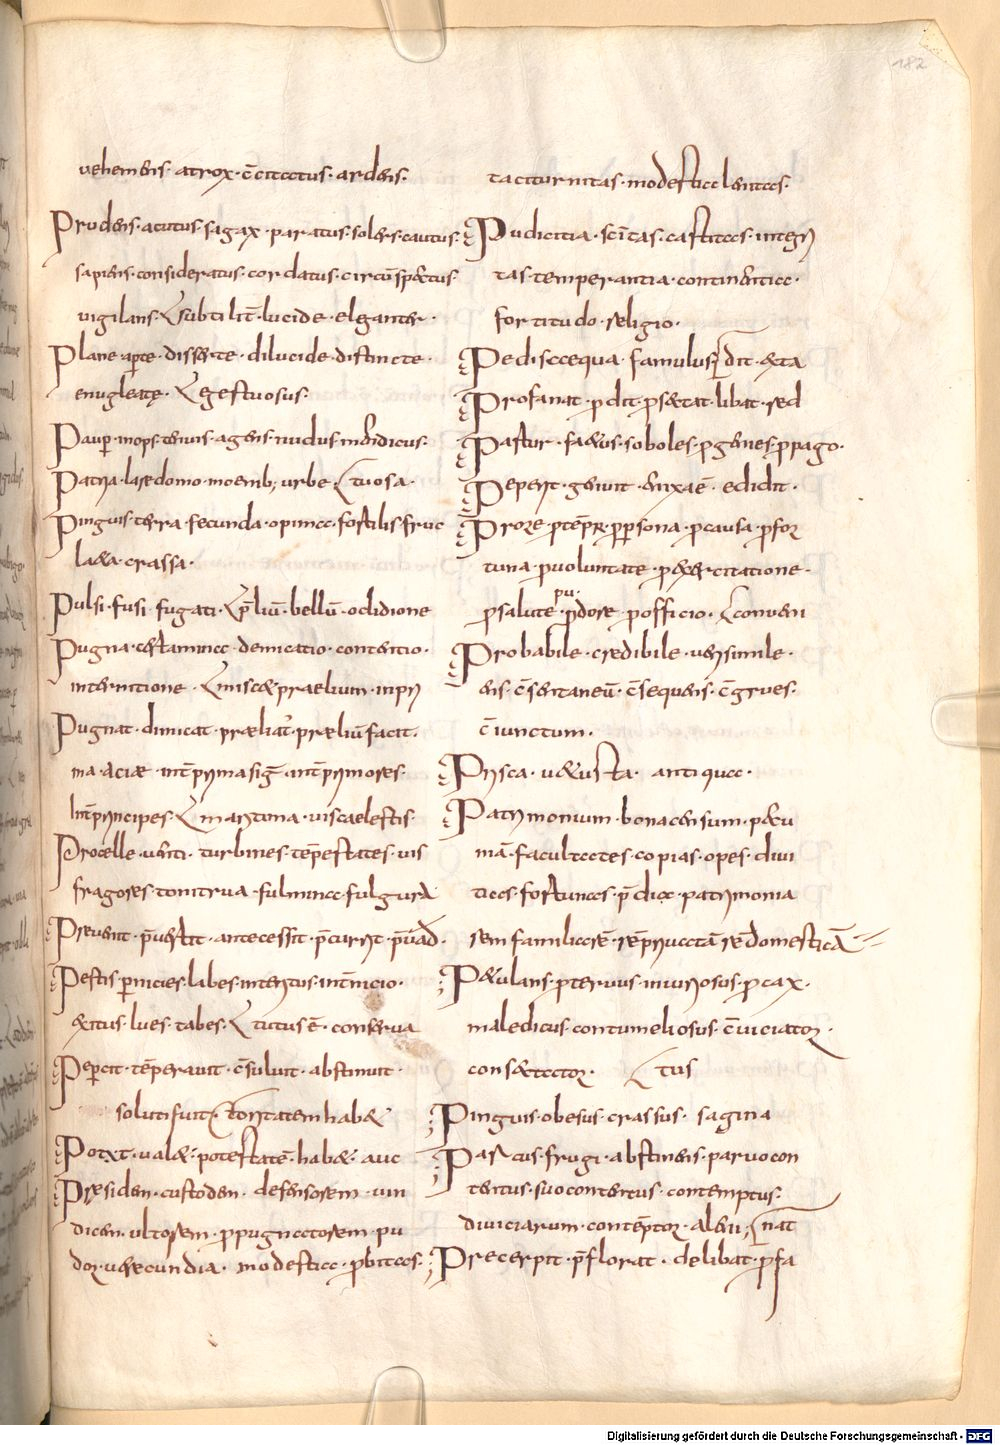 182
uehemens· atrox· c̄citatus· ardens·
Prudens· acutus· sagax· paratus· solers· cautus·
sapiens· consideratus· cordatus· circūspectus
uigilans· subtilit̄· lucide· eleganter·
Plane· aperte· disserte· dilucide· distincte·
enugleatę· egestuosus·
Pauper· inops· tenuis· agens· nudus· mendicus·
Patria· lare domo· moenib; urbe· tuosa·
Pinguis· terra· fecunda· opima· fertilis· fruc
lecta· crassa·
Pulsi· fusi· fugati· p̄liū· bellū· occidione
Pugna· certamina· demicatio· contentio·
internitione· miscet praelium· inpri
Pugnat· dimicat· præliat᷑· præliū facit·
ma· aciæ· int̄ prima siḡ· int̄ primores·
int̄ principes· martima· uis caelestis·
Procelle· uenti· turbines· tēpestates· uis
fragores· tonitrua· fulmina· fulgura
Preuenit· p̄uertit· antecessit· p̄currit·
Pestis· pernicies· labes· interitus· int̄nicio·
exitus· lues· tabes· tutus ē· conserua
Pepercit· tēperauit· c̄suluit· abstinuit·
habet
Potest· ualet· potestatē· habet· auc
Præsiden· custoden· defensorem· uin
dicem· ultorem· propugnatorem· pu
dor· uerecundia· modestia· probitas·
taciturnitas· modestia clentas·
Pudicitia· sc̄itas· castitas· integri
tas· temperantia· continentia·
fortitudo· religio·
Pedisaequa· famulus·
Profanat· prodit· libat· sed
Pastur· fetus· soboles· progenies· propago·
Peperit· genuit· enixa ē· edidit·
Pro re· pro tēpr̄· pro persona· pro causa· pro for
tuna· pro uoluntate· pro exercitatione·
pro salute· pro pudore· pro officio· conueni
Probabile· credibile· uerisimile·
ens· c̄sentaneū· c̄sequens· c̄grues·
c̄iunctum·
Prisca· uetusta· antiqua·
Patrimonium· bona censum· pecu
niā· facultates copias· opes· diui
tias· fortunas· p̄dia· patrimonia
rem familiarē· rē priuatā rē domesticā
Petulans· proteruus· iniuriosus· procax·
maledicus· contumeliosus· c̄uiciator·
consectator· tus
Pinguis· obesus· crassus· sagina
Parcus· frugi· abstinens· paruo con
tentus· suo contentus· contemptus·
diuiciarum· contēptor· alieni; nat
Precerpit· p̄florat· delibat· profa
Digitalisierung gefördert durch die Deutsche Forschungsgemeinschaft - DFG